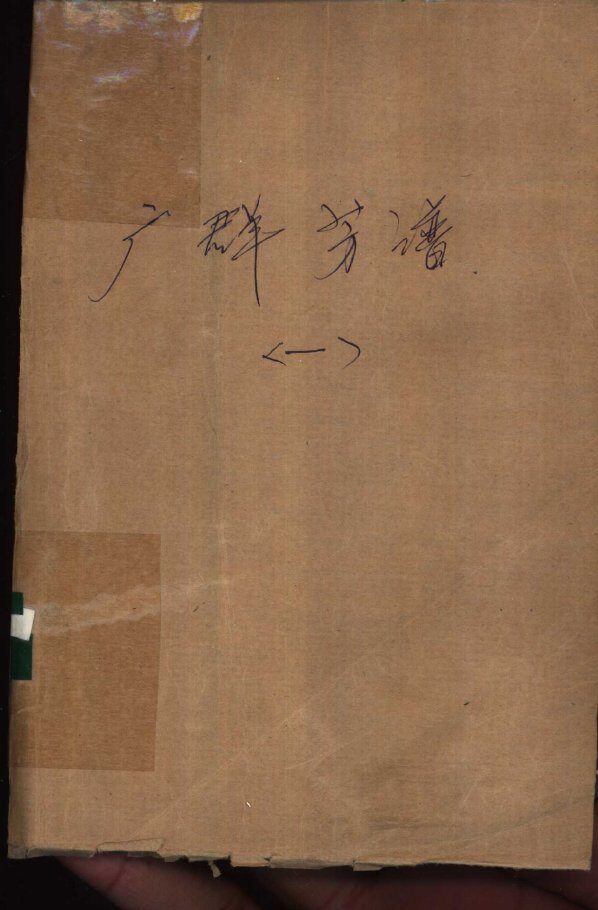 广群芳谱
<一>